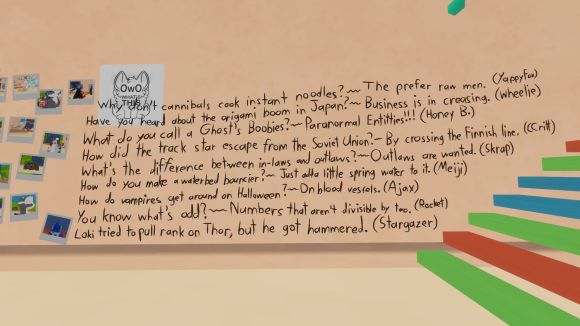 OwO
WHAT'S
THIS
Why don't cannibals cook instant noodles?~~ The prefer raw men. (YappyFox)
Have you heard about the origami boom in Japan?~ Business is in creasing. (Wheelie)
What do you call a Ghost's Boobies?~ Paranormal Entitties!!! (Honey B.)
How did the track star escape from the Soviet Union?~ By crossing the Finnish line. (CCritt)
What's the difference between in-laws and outlaws?~ Outlaws are wanted. (Skrap)
How do you make a waterbed bouncier?~ Just add a little spring water to it. (Meiji)
How do vampires get around on Halloween?~ On blood vessels. (Ajax)
You know what's odd?~~ Numbers that aren't divisible by two. (Rocket)
Loki tried to pull rank on Thor, but he got hammered. (Stargazer)